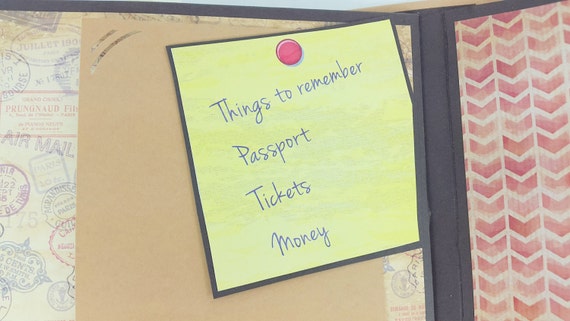 JUILLET 1904
PRUNGNAUD FILS
AIR MAIL
Things to remember
Passport
Tickets
Money